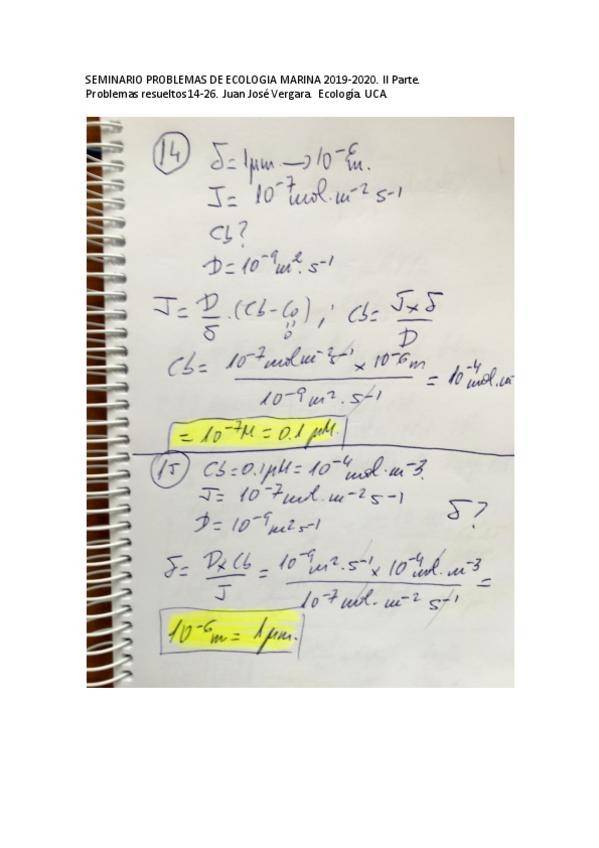 SEMINARIO PROBLEMAS DE ECOLOGIA MARINA 2019-2020. II Parte.
Problemas resueltos14-26. Juan José Vergara. Ecología. UCA
14 δ= 1μm → 10⁻⁶m.
J= 10⁻⁷mol·m⁻² s⁻¹
Cb?
D= 10⁻⁹m²·s⁻¹
J= D/δ ·(Cb-C₀) ; Cb= J×δ/D
0
Cb= 10⁻⁷mol m⁻² s⁻¹ × 10⁻⁶m / 10⁻⁹m²·s⁻¹ = 10⁻⁴mol·m
= 10⁻⁷M = 0.1 μM.
15 Cb=0.1μM= 10⁻⁴mol·m⁻³.
J= 10⁻⁷mol·m⁻² s⁻¹ δ?
D= 10⁻⁹m² s⁻¹
δ= D×Cb/J = 10⁻⁹m²·s⁻¹ × 10⁻⁴mol·m⁻³ / 10⁻⁷mol·m⁻² s⁻¹ =
10⁻⁶m = 1μm.